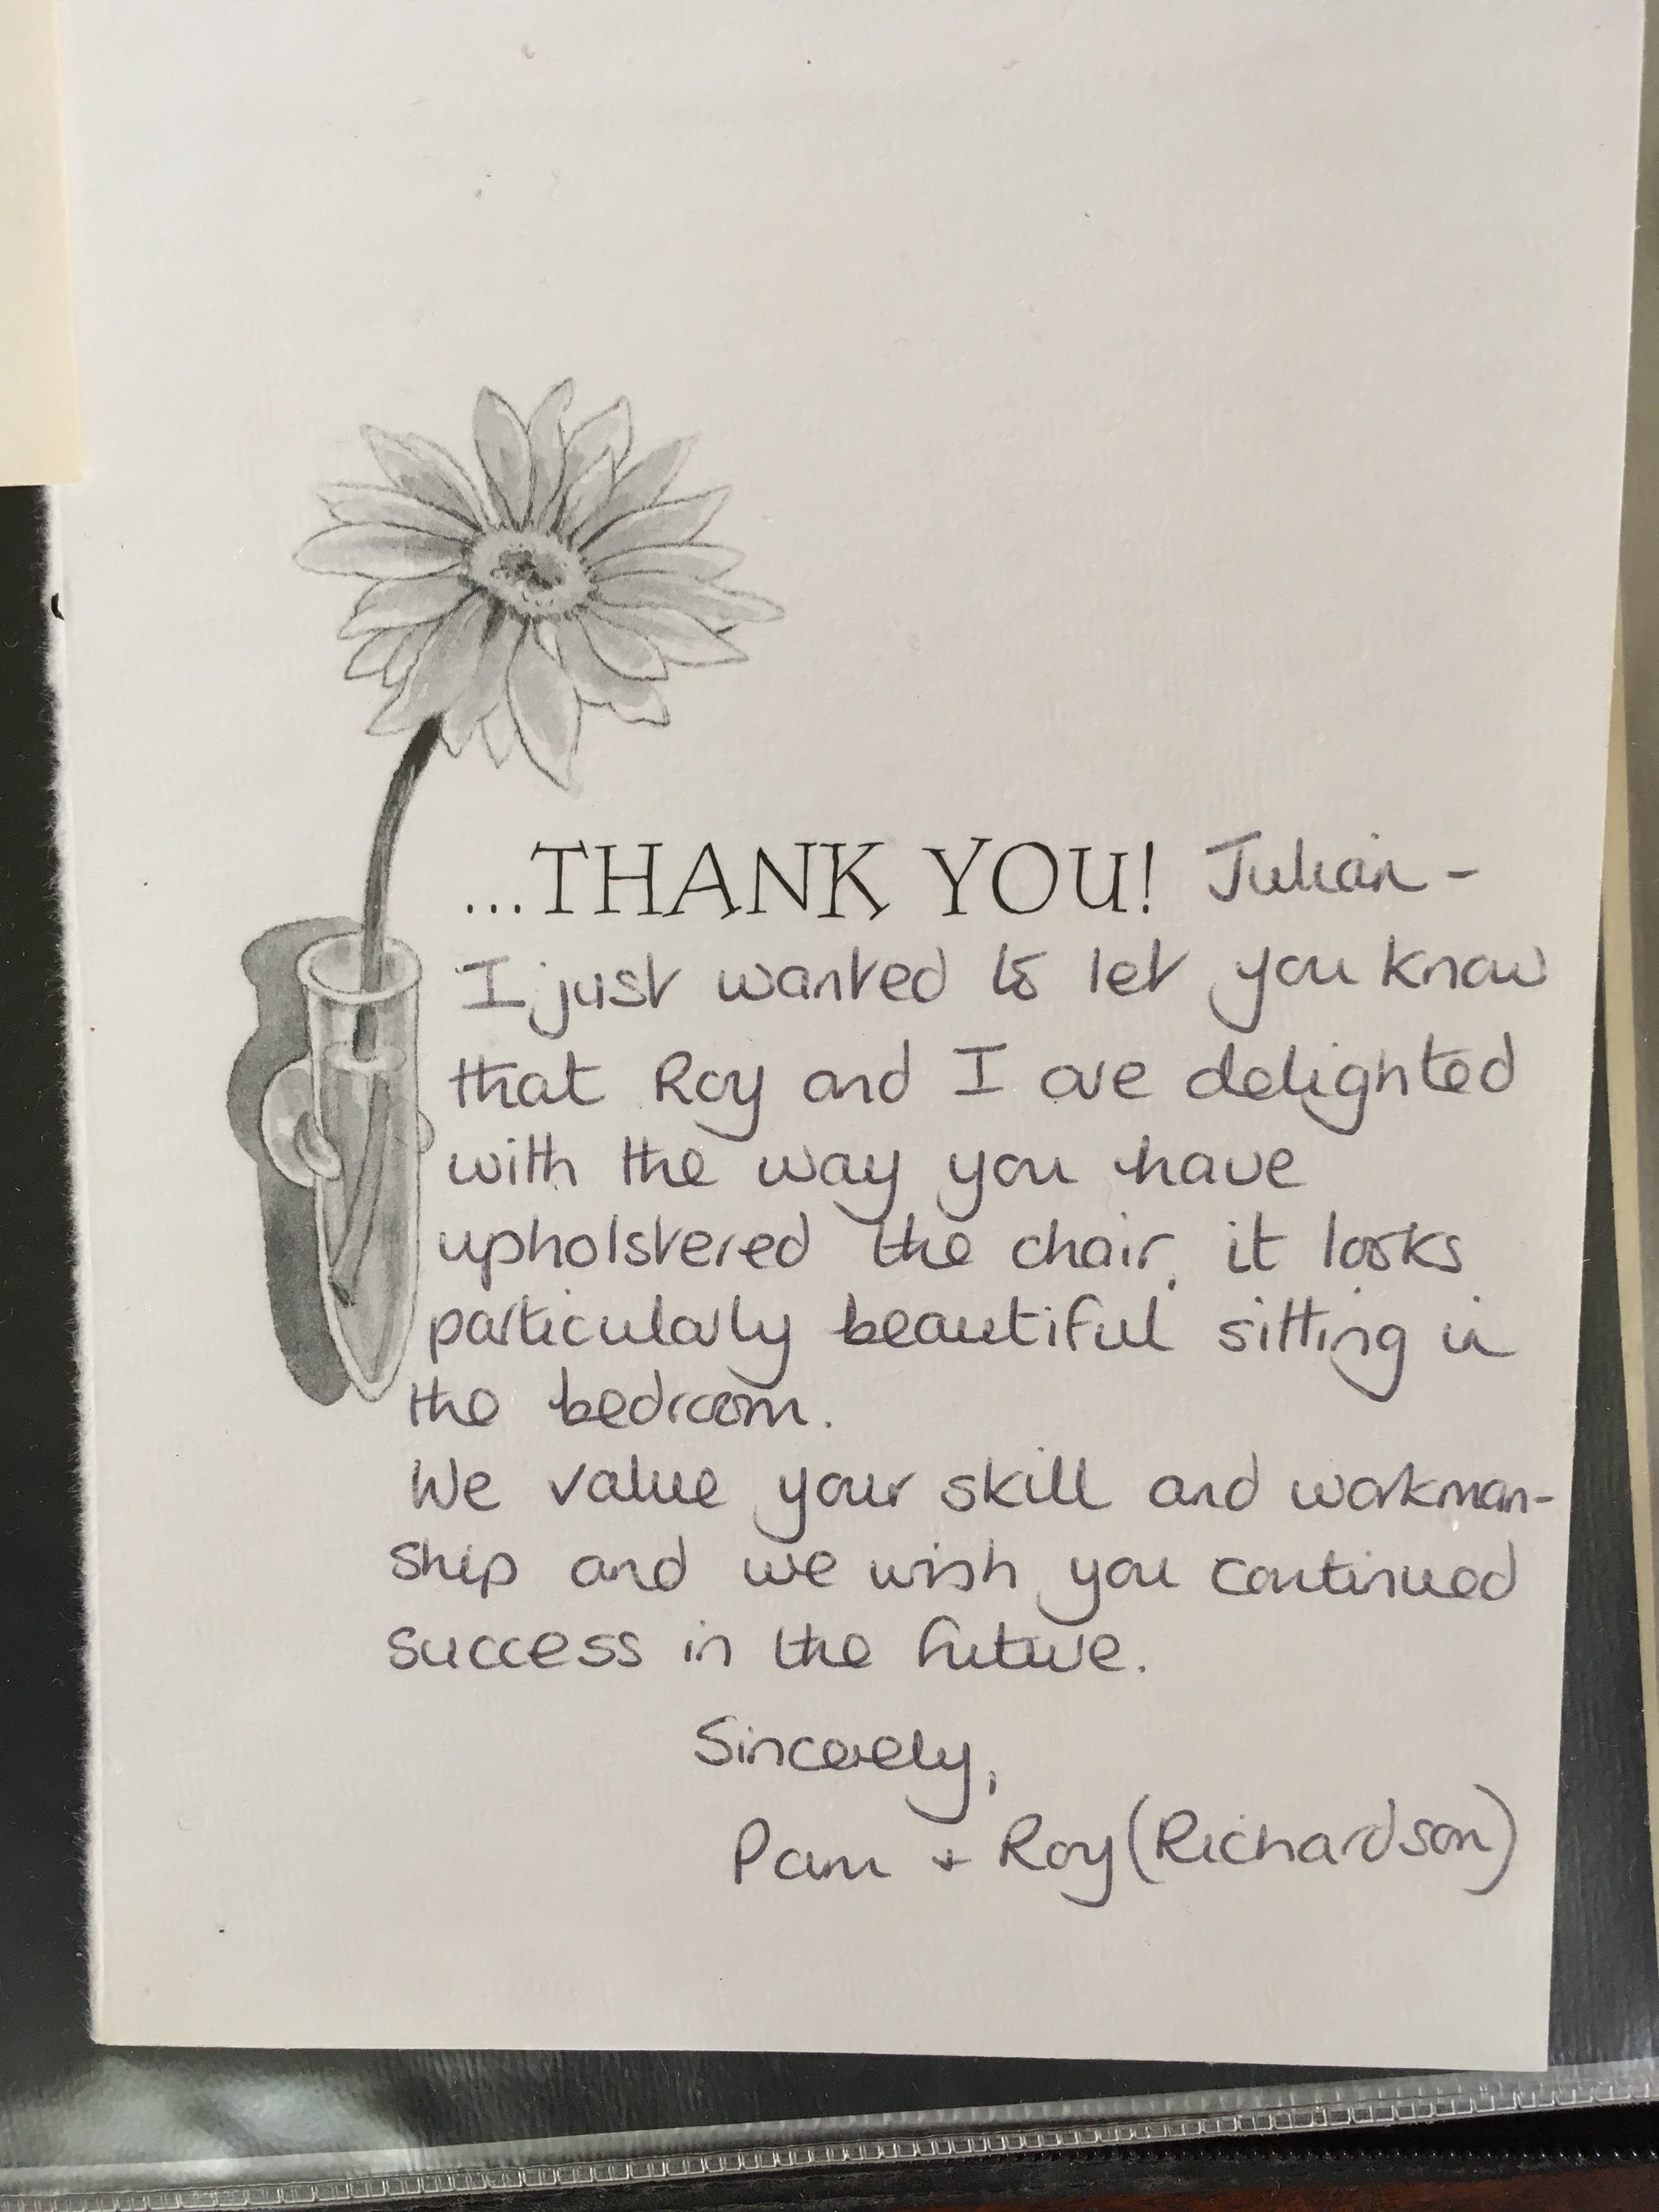 ...THANK YOU! Julian -
I just wanted to let you know
that Roy and I are delighted
with the way you have
upholstered the chair, it looks
particularly beautiful sitting in
the bedroom.
We value your skill and workman-
ship and we wish you continued
success in the future.
Sincerely,
Pam + Roy (Richardson)